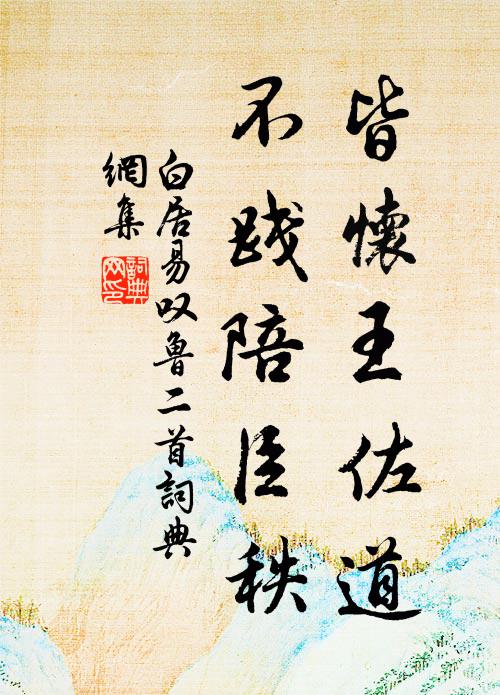 皆懷王佐道
不踐陪臣秩
白居易叹魯二首詞典
網集
詞典網印